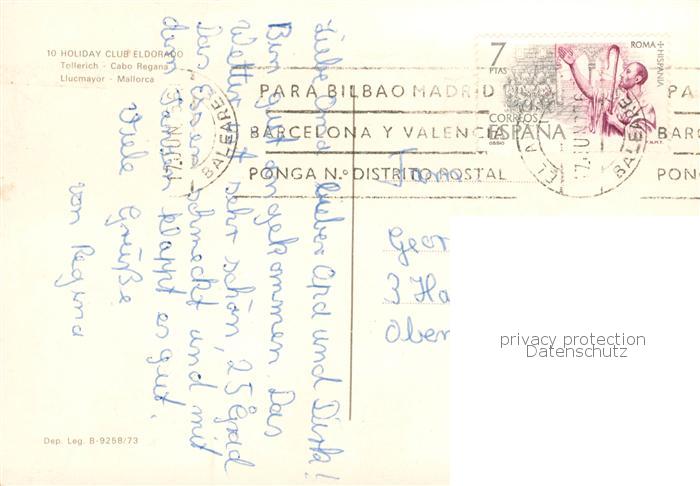 10 HOLIDAY CLUB ELDORADO
Tollerich - Cabo Regana
Llucmayor - Mallorca
Liebe Oma lieber Opa und Dirk!
Bin gut angekommen. Das
Wetter ist sehr schön, 25 Grad
Das Essen schmeckt und mit
dem klappt es gut.
Viele Grüße
von Regina
Dep. Leg. B-9258/73
7
PTAS
ROMA + HISPANIA
CORREOS
ESPAÑA
F.N.M.T.
PARA BILBAO MADRID
BARCELONA Y VALENCIA
PONGA N.º DISTRITO POSTAL
PA
BARC
PON
BALEARES
17 JUN
EL A
BALEARES
Fam
Geor
3 Ha
Ober
privacy protection
Datenschutz